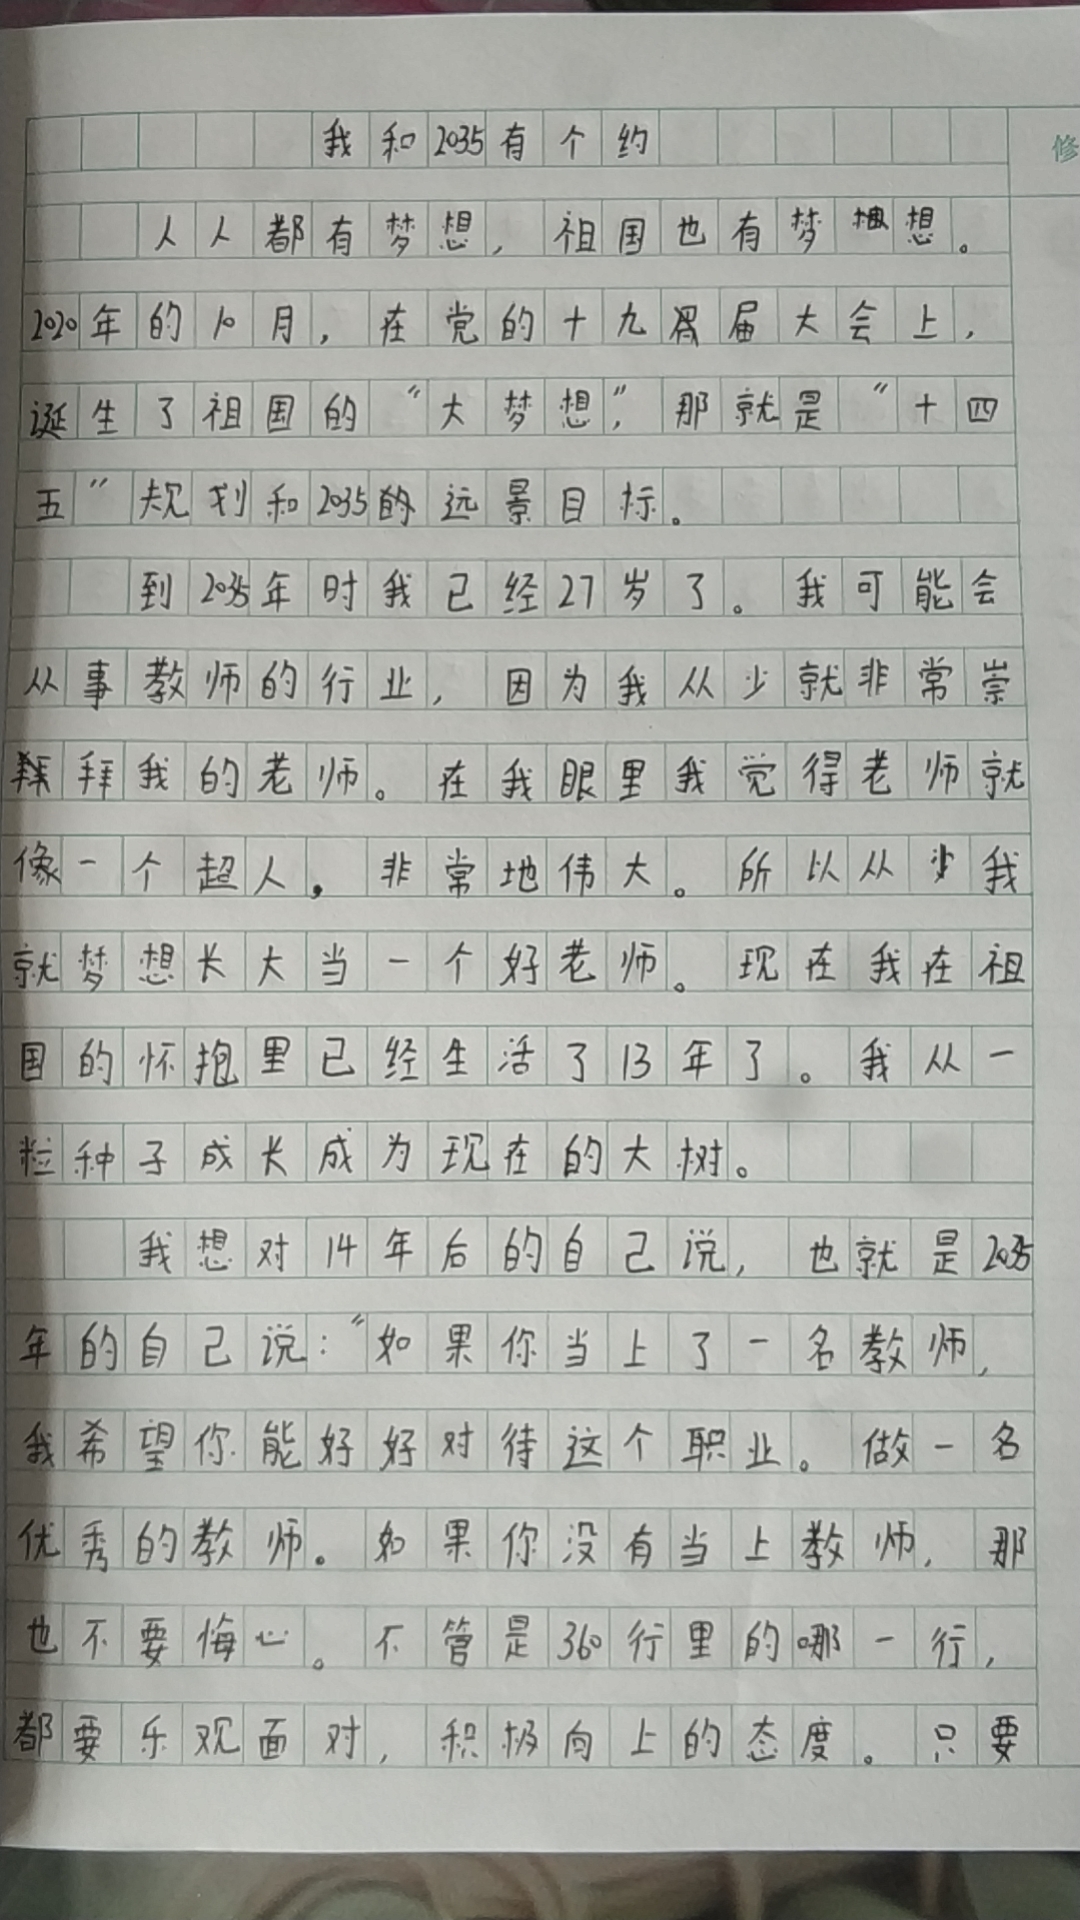 我和2035有个约
修
人人都有梦想，祖国也有梦想。
2020年的10月，在党的十九届大会上，
诞生了祖国的“大梦想”，那就是“十四
五”规划和2035的远景目标。
到2035年时我已经27岁了。我可能会
从事教师的行业，因为我从少就非常崇
拜我的老师。在我眼里我觉得老师就
像一个超人，非常地伟大。所以从少我
就梦想长大当一个好老师。现在我在祖
国的怀抱里已经生活了13年了。我从一
粒种子成长成为现在的大树。
我想对14年后的自己说，也就是2035
年的自己说：“如果你当上了一名教师，
我希望你能好好对待这个职业。做一名
优秀的教师。如果你没有当上教师，那
也不要悔心。不管是360行里的哪一行，
都要乐观面对，积极向上的态度。只要